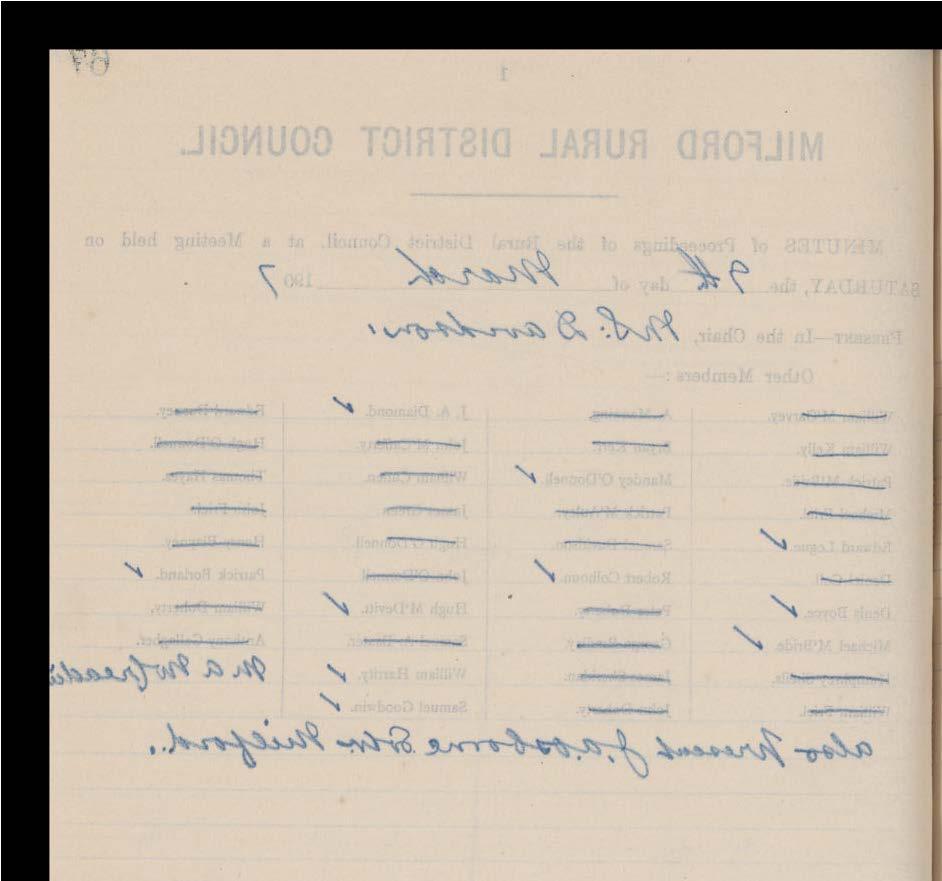 1
MILFORD RURAL DISTRICT COUNCIL.
MINUTES of Proceedings of the Rural District Council, at a Meeting held on
SATURDAY, the 9th day of March 1907
PRESENT—In the Chair, Mr. S. Davidson.
Other Members:—
William M'Garvey. A. Manning J. A. Diamond. ✓ Edward
William Kelly. Bryan Kerr. John M'Cafferty. Hugh O'Donnell.
Patrick M'Bride. Mandey O'Donnell. ✓ William Thomas Hayes.
Michael Friel. Patrick M'Auley. James Green. John Friel.
Edward Logue. ✓ Samuel Davidson. Hugh O'Donnell. Henry
Daniel Coll. Robert Colhoun. ✓ John O'Donnell. Patrick Borland. ✓
Denis Boyce. ✓ Peter Hugh M'Devitt. ✓ William Doherty.
Michael M'Bride. ✓ George Samuel A. Anthony Gallagher.
Humphrey James William Harrity. ✓ M A McCreadie
William Friel. John Doherty. Samuel Goodwin. ✓
also present J. A. Osborne Milford.